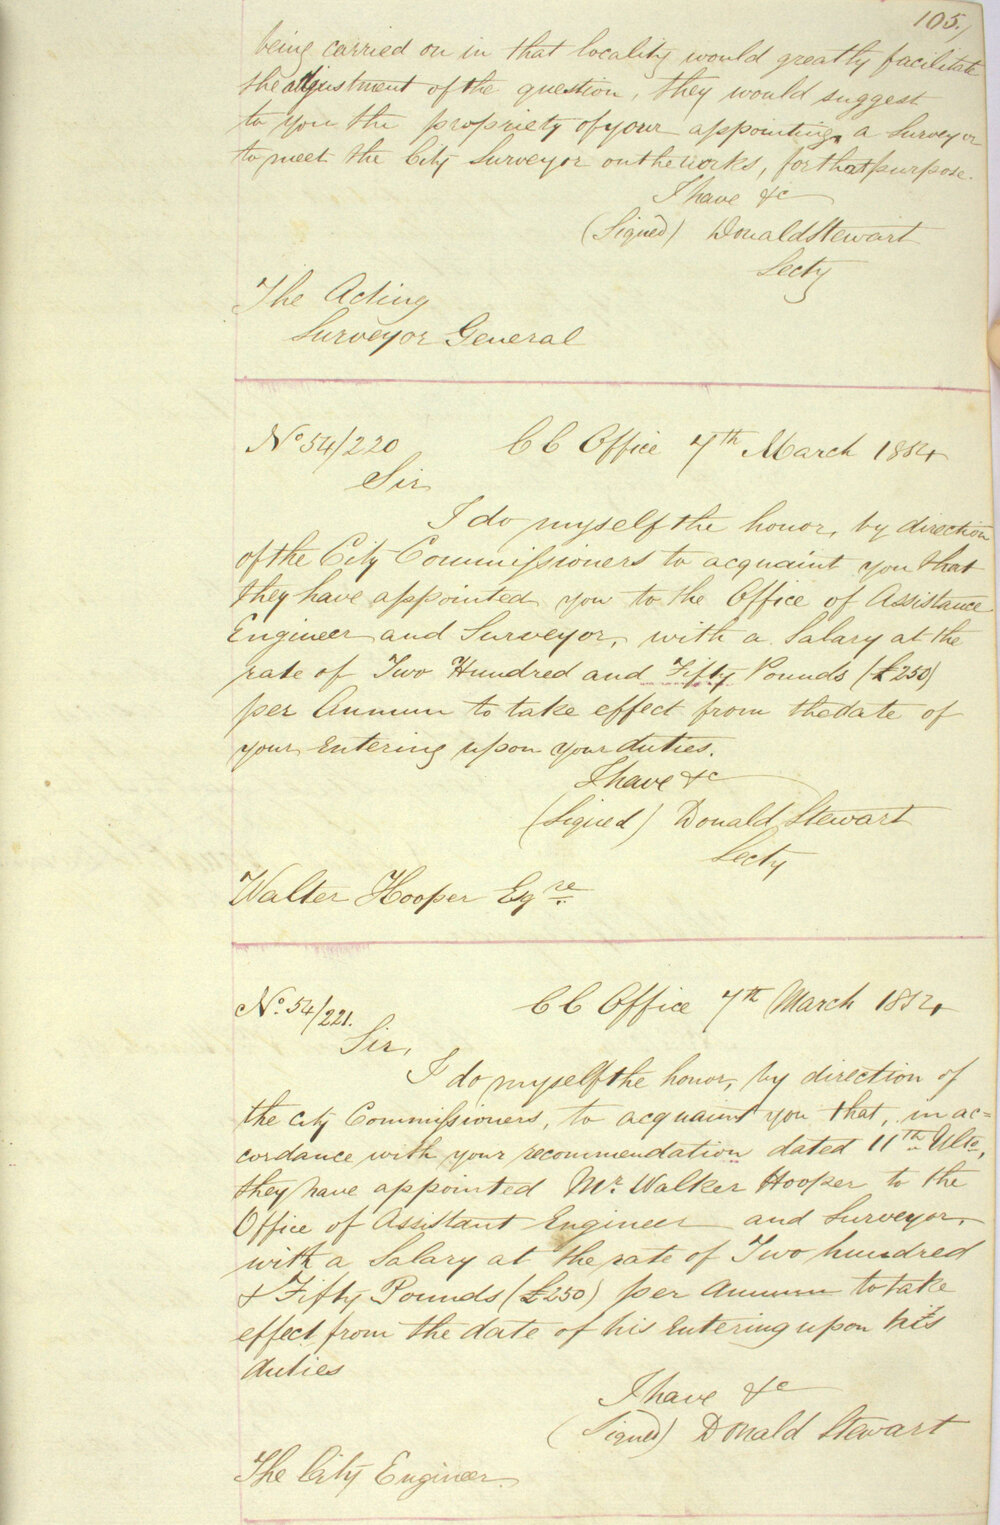 105.
being carried on in that locality would greatly facilitate
the adjustment of the question, they would suggest
to you the propriety of your appointing a Surveyor
to meet the City Surveyor on the works, for that purpose.
I have &c
(Signed) Donald Stewart
Secty
The Acting
Surveyor General
No 54/220 C C Office 7th March 1854
Sir
I do myself the honor, by direction
of the City Commissioners to acquaint you that
they have appointed you to the Office of Assistance
Engineer and Surveyor, with a Salary at the
rate of Two Hundred and Fifty Pounds (£250)
per Annum to take effect from the date of
your Entering upon your duties.
I have &c
(Signed) Donald Stewart
Secty
Walter Hooper Esqre
No. 54/221. C C Office 7th March 1854
Sir,
I do myself the honor, by direction of
the City Commissioners, to acquaint you that, in ac=
cordance with your recommendation dated 11th Ulto,
they have appointed Mr. Walker Hooper to the
Office of Assistant Engineer and Surveyor,
with a Salary at the rate of Two hundred
& Fifty Pounds (£250) per Annum to take
effect from the date of his Entering upon his
duties
I have &c
(Signed) Donald Stewart
The City Engineer